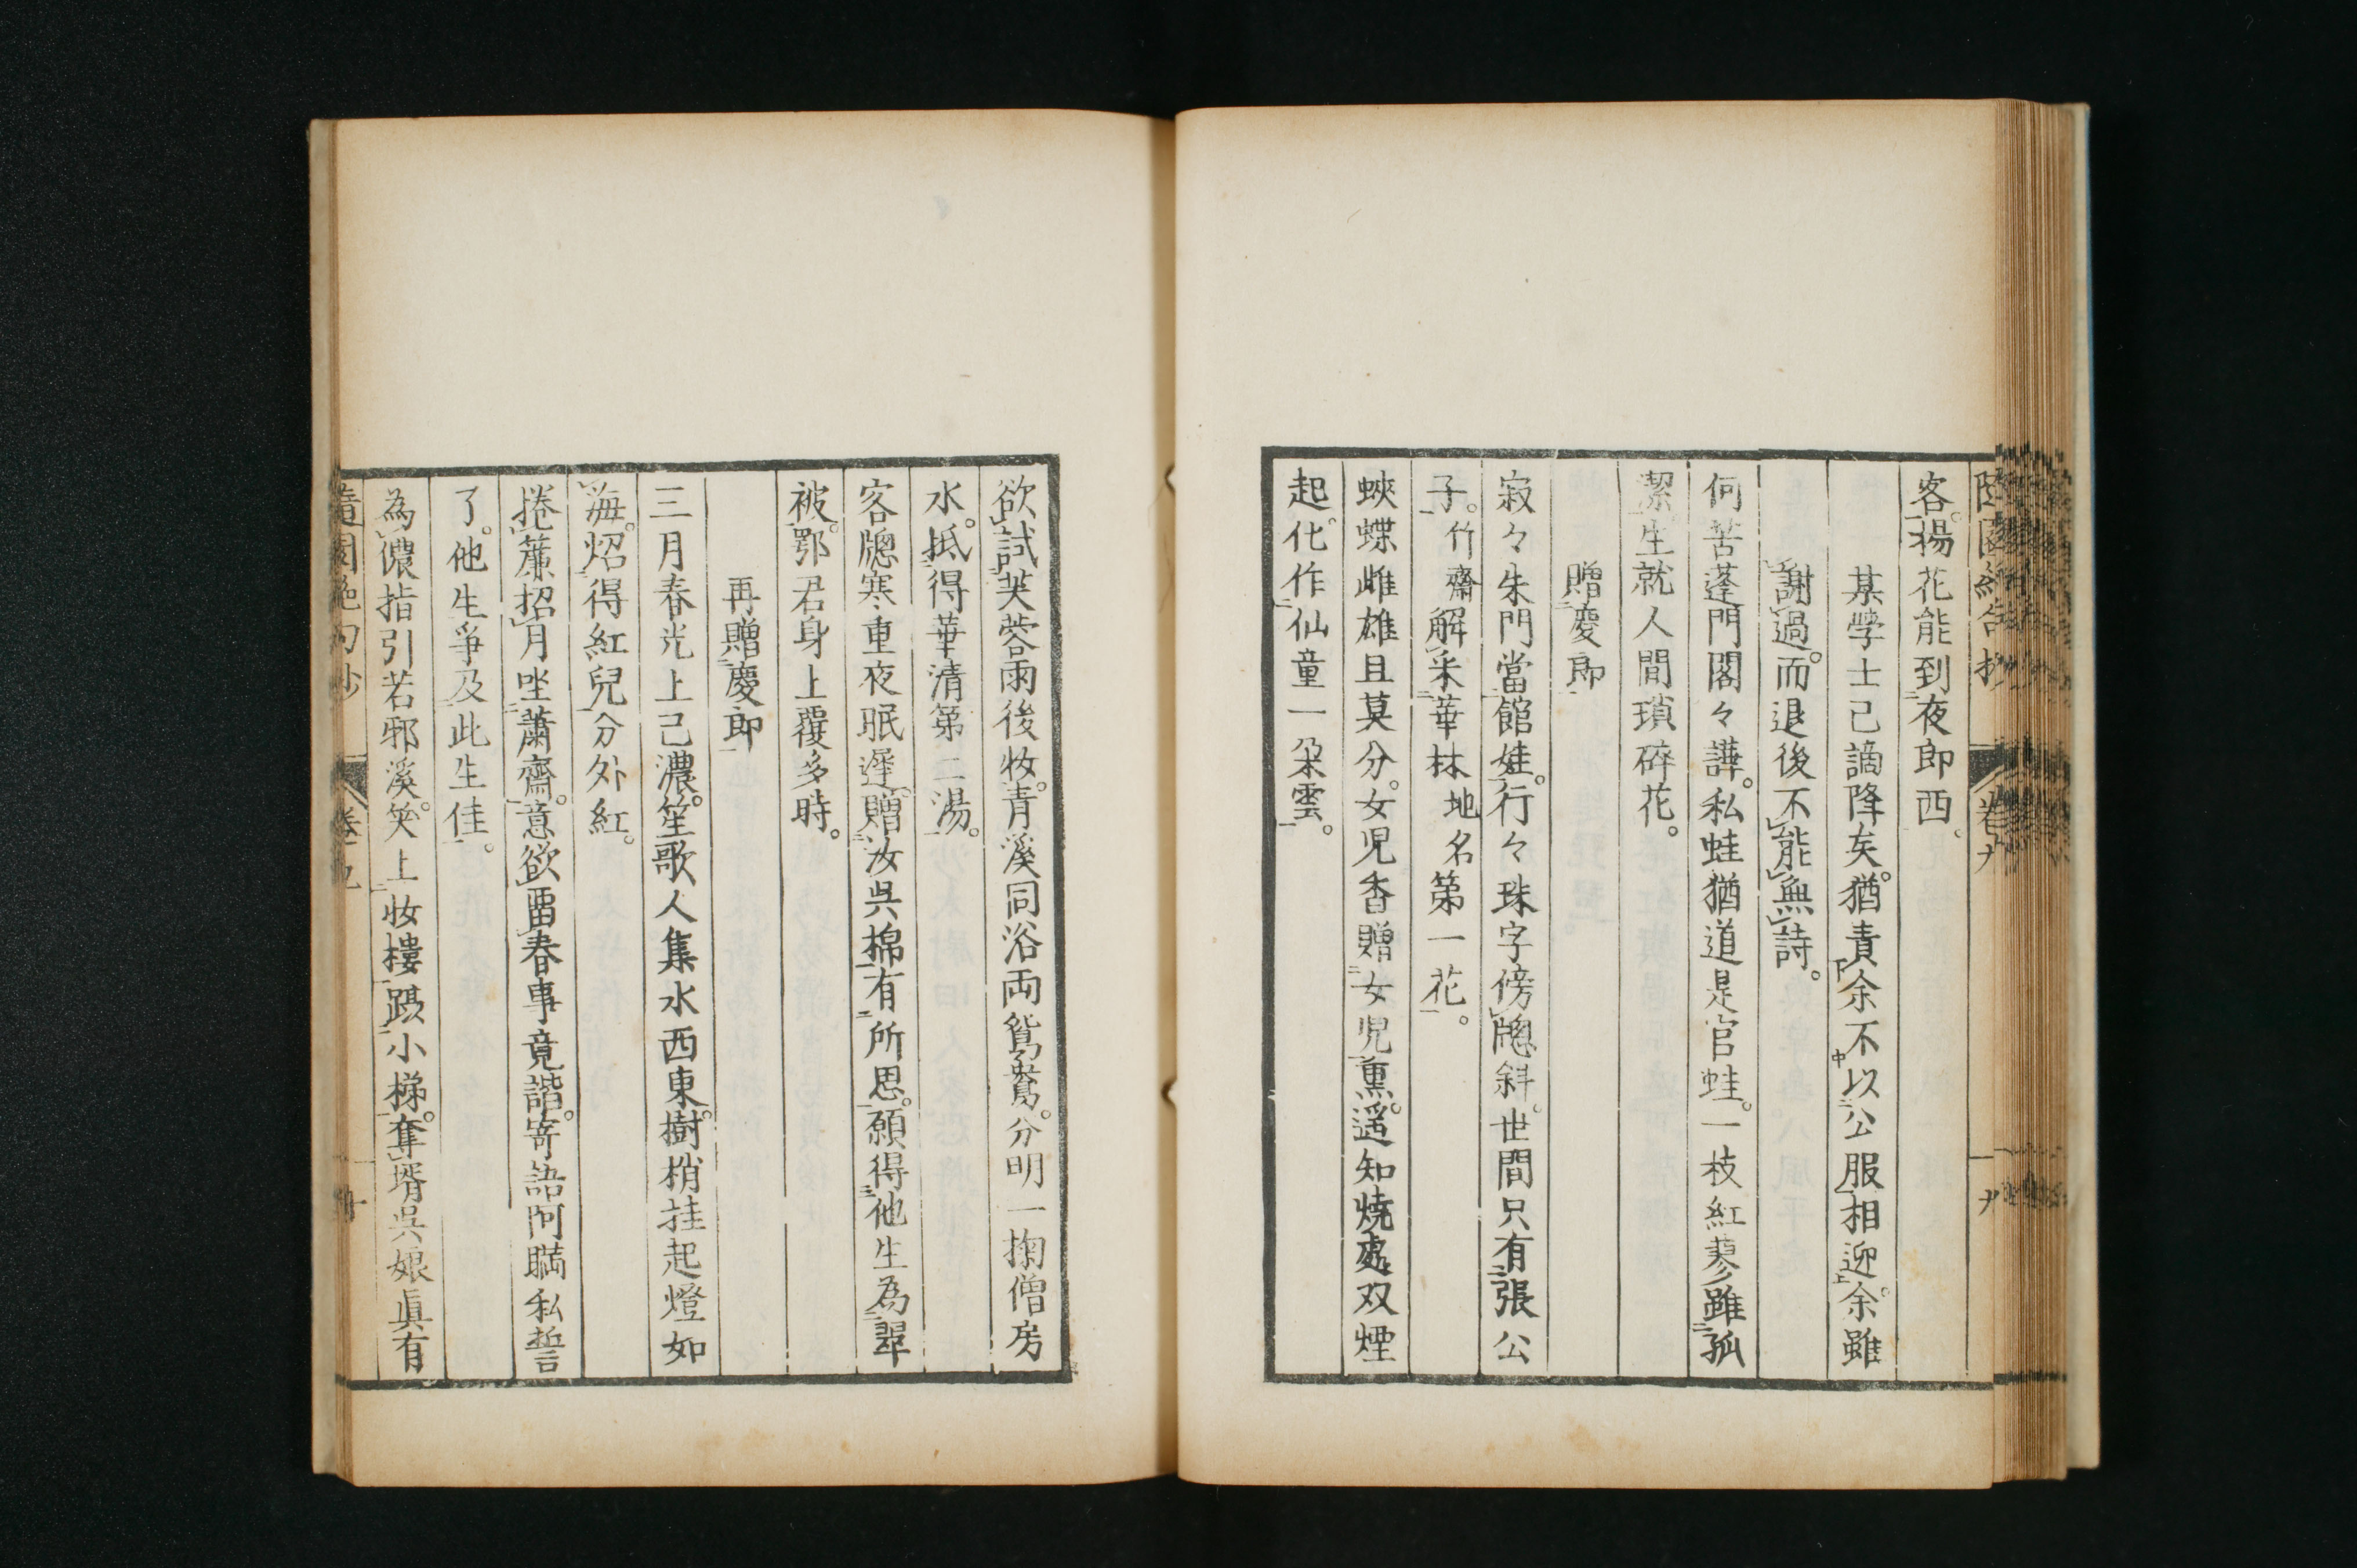 客。楊花能到夜郎西。
某學士已謫降矣。猶責余不以公服相迎。余雖
謝過。而退後不能無詩。
何苦蓬門閣々譁。私蛙猶道是官蛙。一枝紅蓼雖孤
潔。生就人間瑣碎花。
贈慶郎
寂々朱門當館娃。行々珠字傍牕斜。世間只有張公
子。竹齋解采華林地名第一花。
蛺蝶雌雄且莫分。女児香贈女児熏。遥知焼處双煙
起。化作仙童一朶雲。
欲試芙蓉雨後妝。青溪同浴両鴛鴦。分明一掬僧房
水。抵得華清第二湯。
客牕寒重夜眠遲。贈汝吳棉有所思。願得他生為翠
被。鄂君身上覆多時。
再贈慶郎
三月春光上已濃。笙歌人集水西東。樹梢挂起燈如
海。炤得紅兒分外紅。
捲簾招月坐蕭齋。意欲畱春事竟諧。寄語阿瞞私誓
了。他生爭及此生佳。
為儂指引若邪溪。笑上妝樓躡小梯。奪壻吳娘眞有
隨園絶句抄 卷九 十